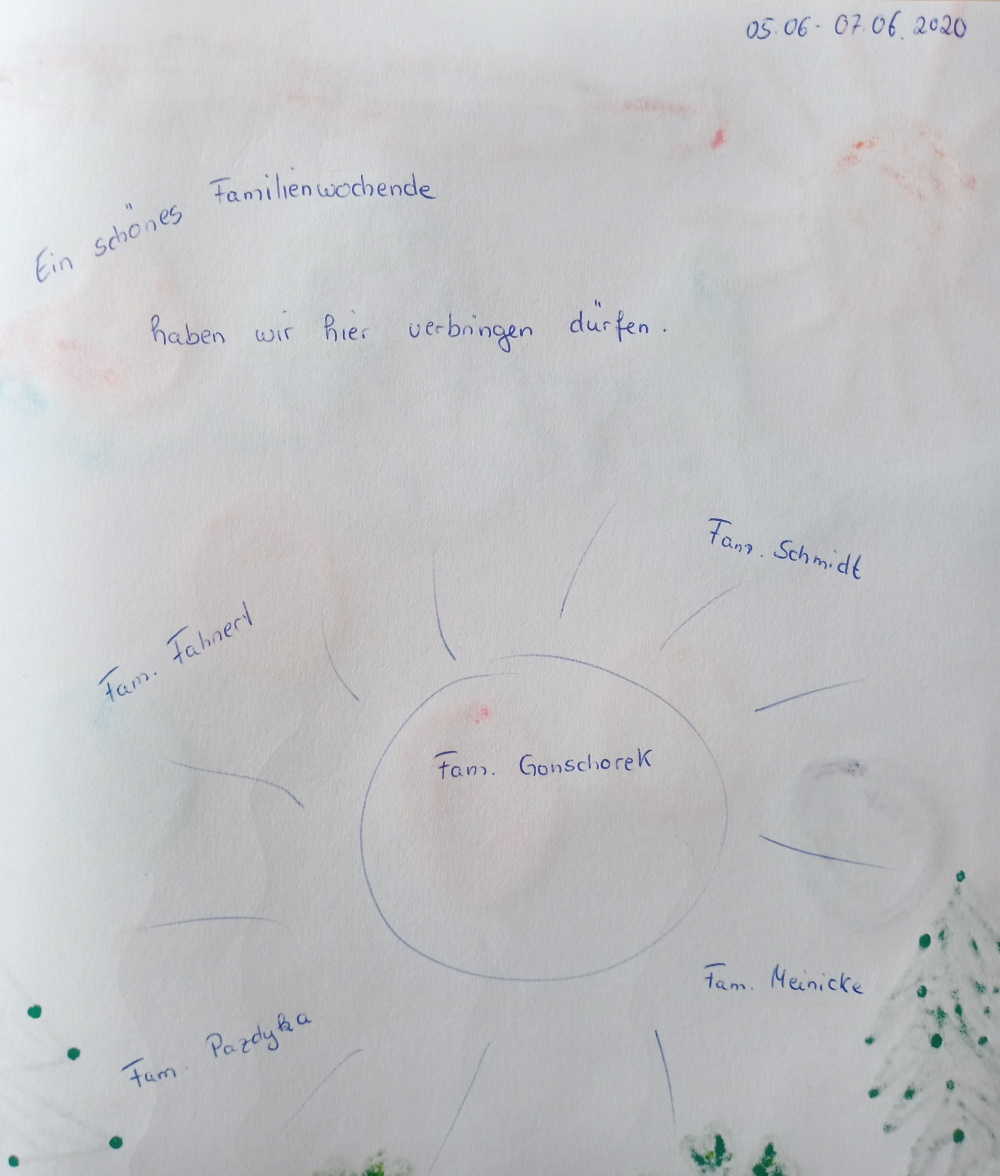 05.06 - 07.06.2020
Ein schönes Familienwochende
haben wir hier verbringen dürfen.
Fam. Schmidt
Fam. Fahnert
Fam. Gonschorek
Fam. Meinicke
Fam. Pazdyka